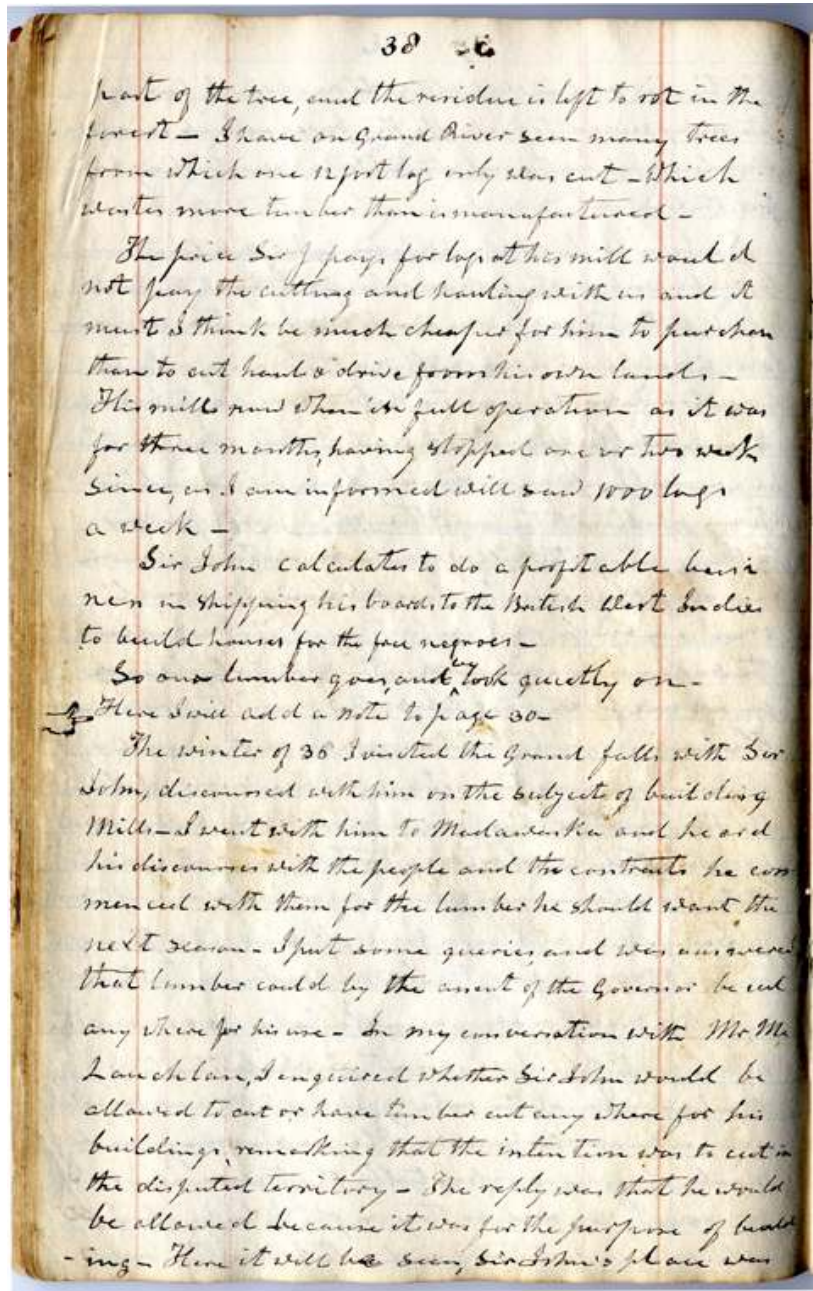 38
part of the tree, and the residue is left to rot in the
forest — I have on Grand River seen many trees
from which one 12 foot log only was cut — Which
wastes more timber than is manufactured —
The price Sir J pays for logs at his mill would
not pay the cutting and hauling with us and it
must I think be much cheaper for him to purchase
than to cut haul & drive from his own lands —
His mills now when in full operation as it was
for three months, having stopped one or two week
since, as I am informed will saw 1000 logs
a week —
Sir John calculates to do a profitable busi
ness in shipping his boards to the British West Indies
to build houses for the free negroes —
So our lumber goes, and we look quietly on —
Here I will add a note to page 30 —
The winter of 36 I visited the Grand falls with Sir
John, discoursed with him on the subjects of building
Mills — I went with him to Madawaska and heard
his discourses with the people and the contracts he com
menced with them for the lumber he should want the
next season — I put some queries, and was answered
that lumber could by the assent of the Governor be cut
any where for his use — In my conversation with Mr. Mc
Lauchlan, I enquired whether Sir John would be
allowed to cut or have timber cut any where for his
buildings, remarking that the intention was to cut in
the disputed territory — The reply was that he would
be allowed because it was for the purpose of build
-ing — Here it will be seen, Sir John's place was